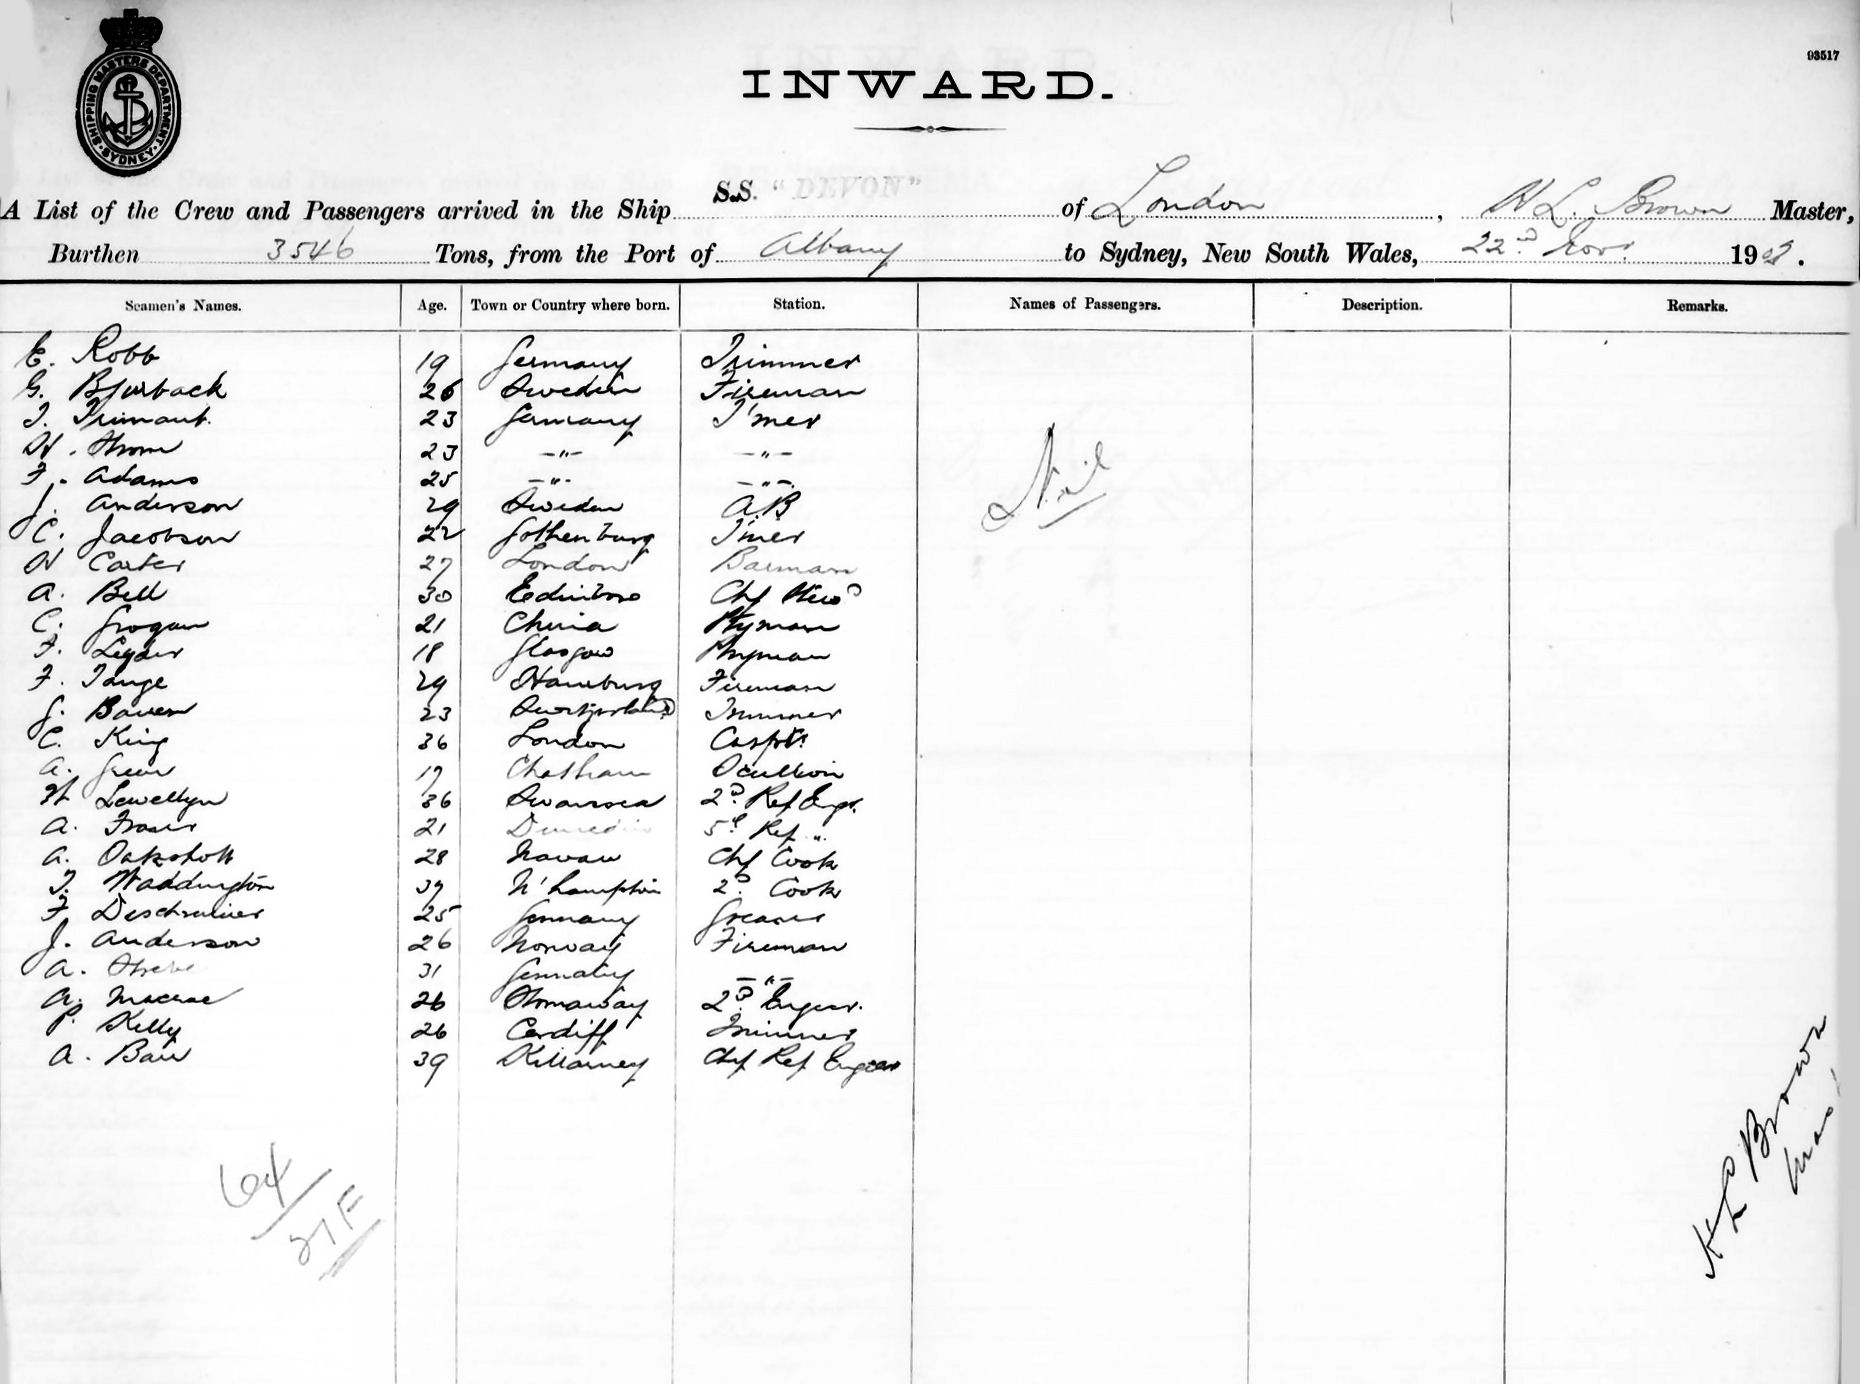 SHIPPING MASTERS DEPARTMENT · SYDNEY ·
93517
INWARD.
A List of the Crew and Passengers arrived in the Ship S.S. "DEVON" of London, H L. Brown Master,
Burthen 3546 Tons, from the Port of Albany to Sydney, New South Wales, 22nd Novr. 190
Seamen's Names. Age. Town or Country where born. Station. Names of Passengers. Description. Remarks.
E. Robb 19 Germany Trimmer
G. Bjurback 26 Sweden Fireman
23 Germany T'mer
23 —"— —"—
F. Adams 25 —"— —"—
J. Anderson 29 Sweden A.B
Nil
C. Jacobson 22 Gothenburg T'mer
W Carter 27 London Barman
A. Bell 30 Edinboro Chf
C. Grogan 21 China Ptyman
F. 18 Glasgow
F. Tange 29 Hamburg Fireman
J. Bauer 23 Switzerland Trimmer
C. King 36 London Carptr
A. Green 17 Chatham Scullion
W Lewellyn 36 Swansea 2d. Ref Engr.
A. Fraser 21 Dunedin 5th Ref "
A. Oakshott 28 Chf Cook
T. Waddington 37 N'hampton 2d Cook
F. 25 Germany Greaser
J. Anderson 26 Norway Fireman
A. 31 Germany —"—
A. Macrae 26 Stornaway 2d Engeer.
P. Kelly 26 Cardiff Trimmer
A. Barr 39 Killarney Chf Ref Engeer
64
27 F
H L Brown
Mas